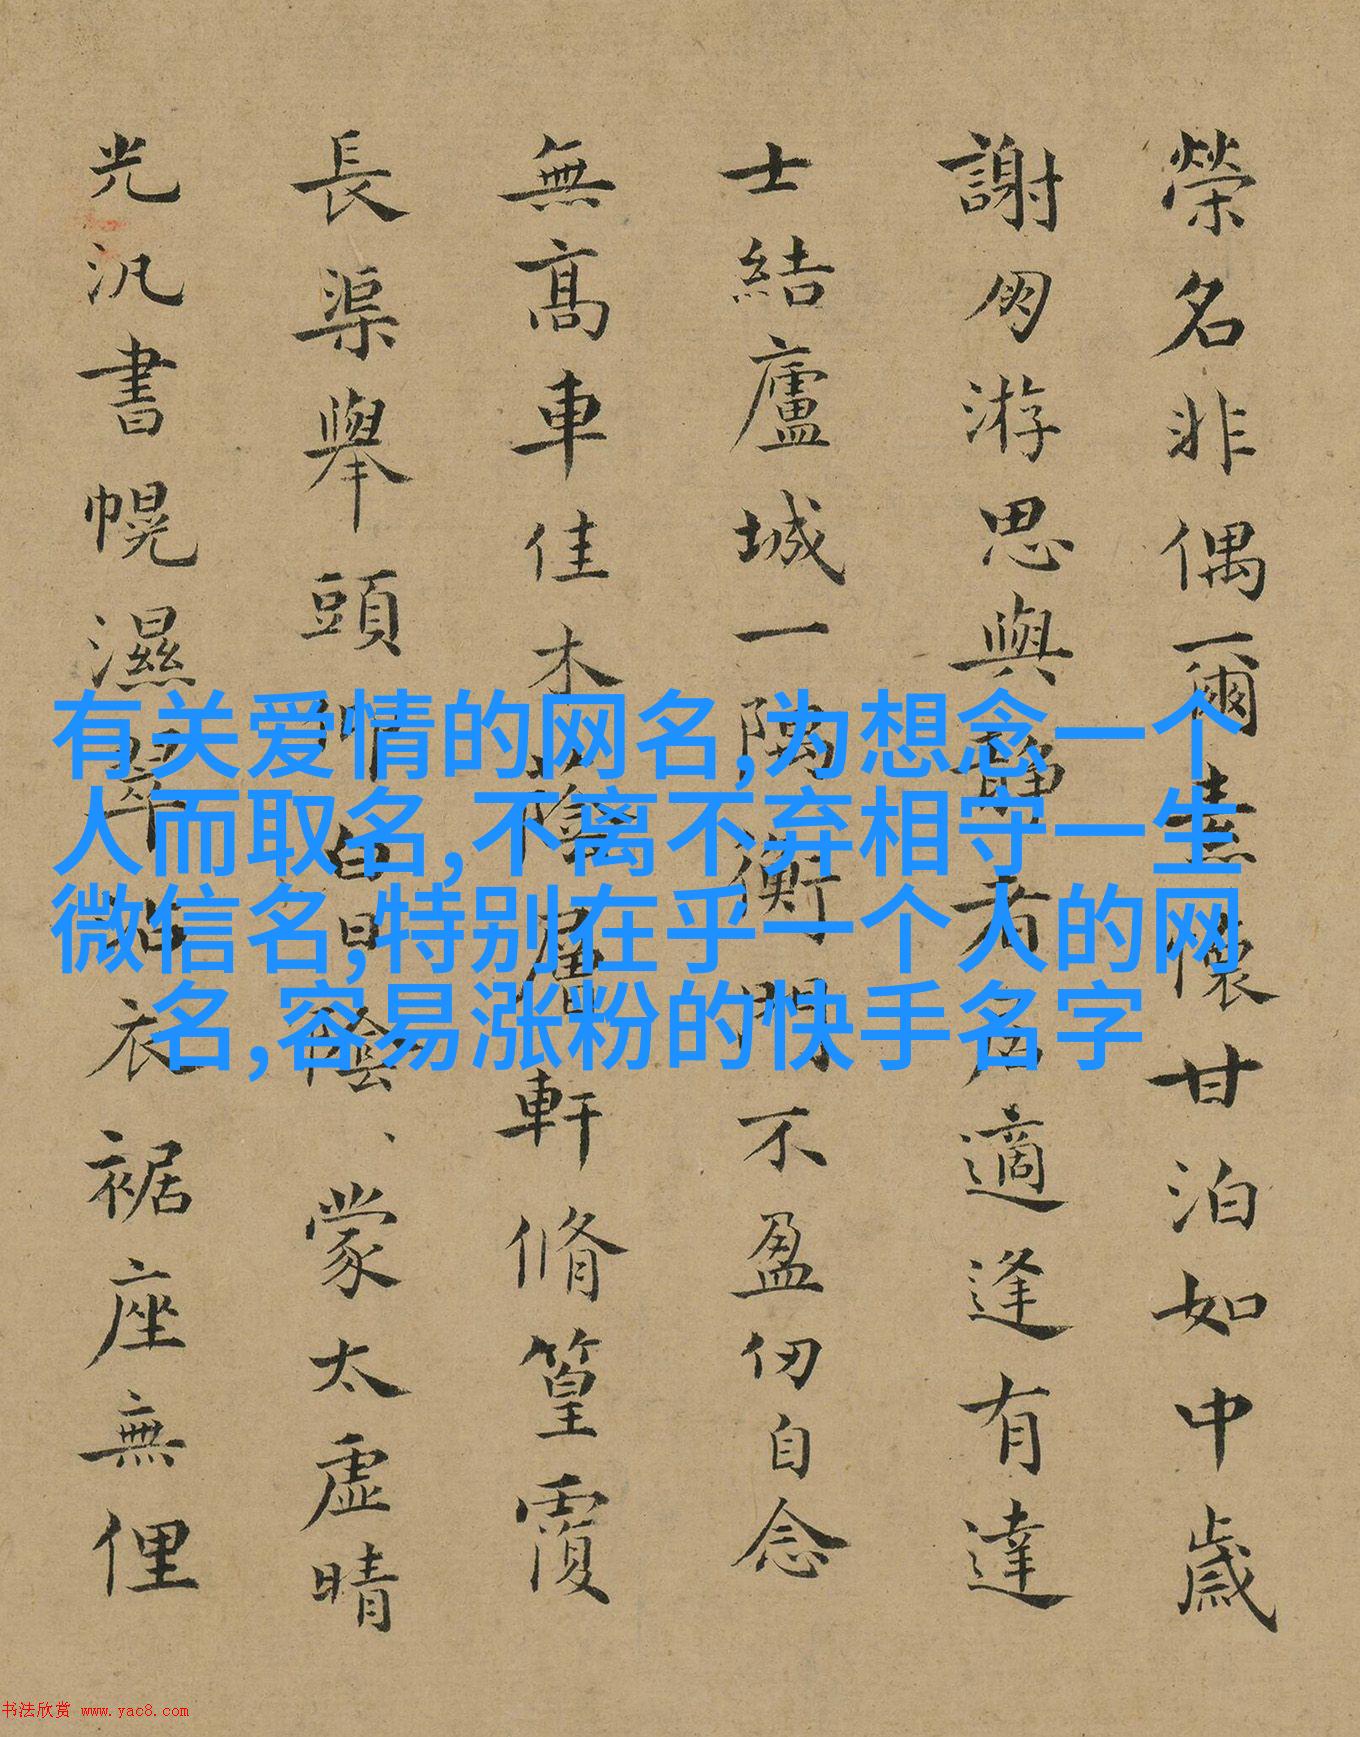 榮名非偶爾素懷甘泊如中歲
謝朋游思與靜者居適逢有達
士結廬城一隅衡門不盈仞自念
無高車佳木蔭層軒脩篁覆
長渠舉頭白日陰、蒙太虛晴
光汎書幌濕翠沾衣裾座無俚
有关爱情的网名,为想念一个
人而取名,不离不弃相守一生
微信名,特别在乎一个人的网
名,容易涨粉的快手名字
书法欣赏 www.yac8.com